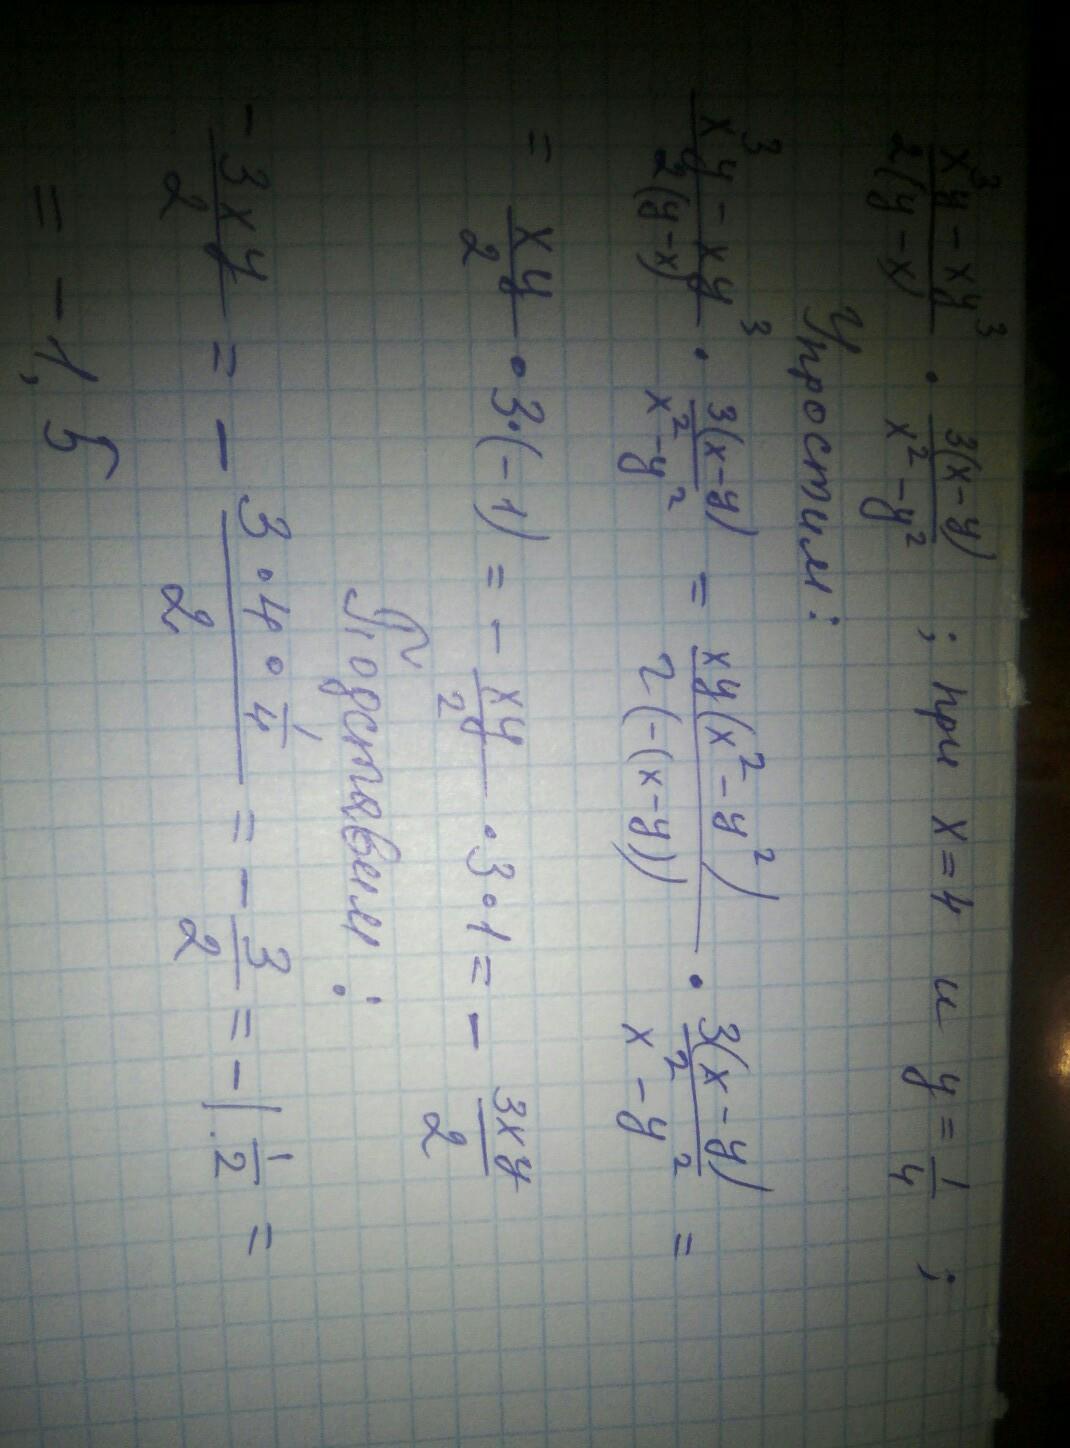 (x³y - xy³)/(2(y - x)) · (3(x - y))/(x² - y²) ; при x = 4 и y = 1/4 ;
Упростим:
(x³y - xy³)/(2(y - x)) · (3(x - y))/(x² - y²) = (xy(x² - y²))/(2(-(x - y))) · (3(x - y))/(x² - y²) =
= xy/2 · 3·(-1) = - xy/2 · 3·1 = - 3xy/2
Подставим:
- 3xy/2 = - (3·4·1/4)/2 = - 3/2 = - 1 1/2 =
= - 1,5